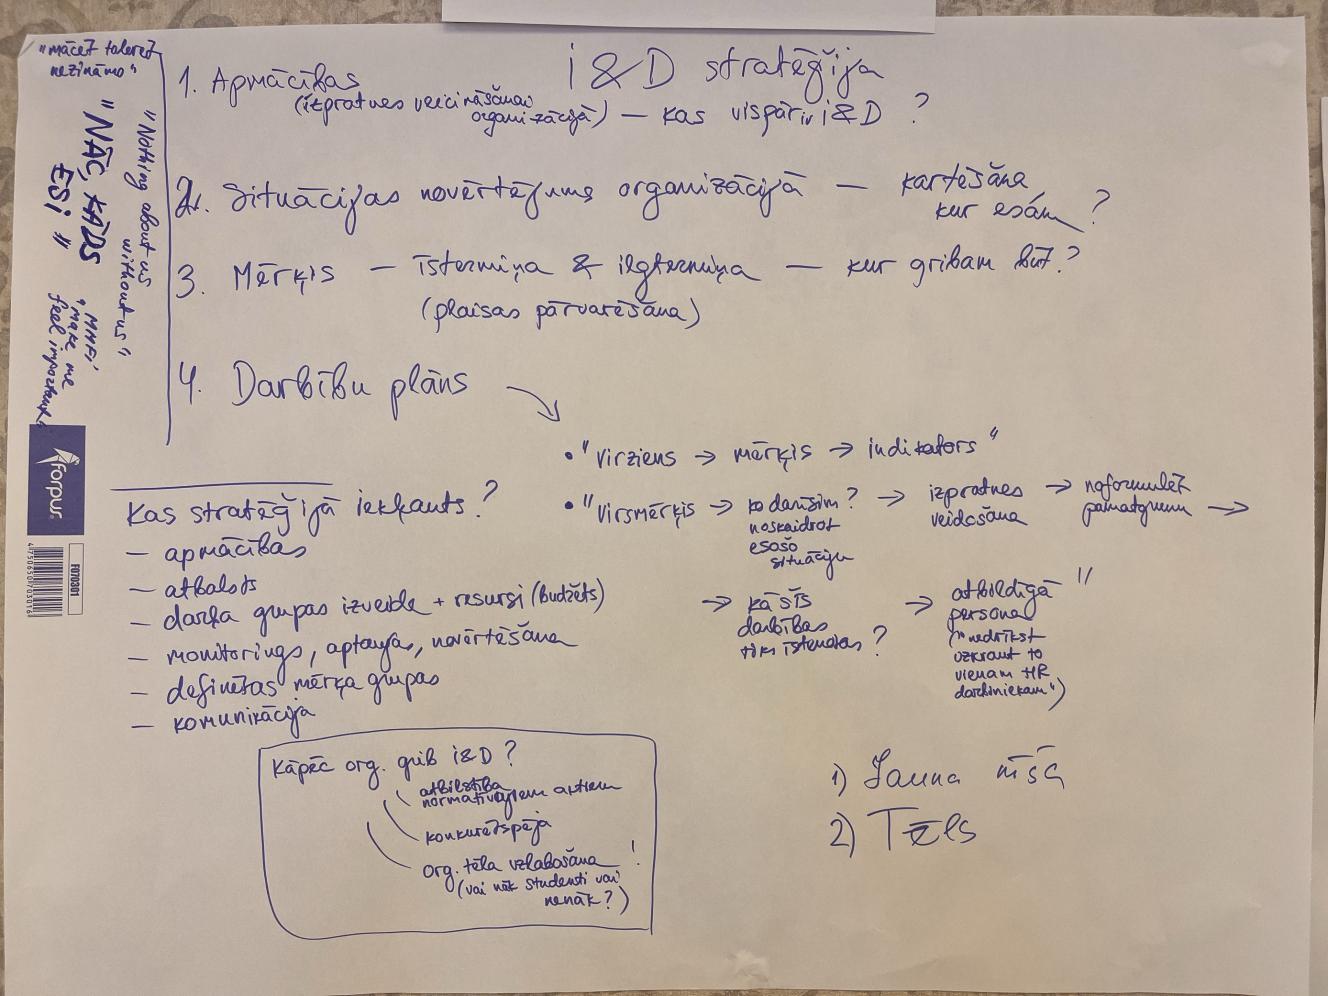 "mācēt tolerēt
nezināmo"
"Nothing about us
without us"
"NĀC, KĀDS
ESi"
MMFi
"Make me
feel important"
forpus
FO70301
4750650703016
i&D stratēģija
1. Apmācības
(izpratnes veicināšanai
organizācijā) — kas vispār ir i&D ?
2. Situācijas novērtējums organizācijā — kartēšana,
kur esam ?
3. Mērķis — īstermiņa & ilgtermiņa — kur gribam būt?
(plaisas pārvarēšana)
4. Darbību plāns
• "Virziens → mērķis → indikators"
• "Virsmērķis → ko darīsim? → izpratnes → noformulēt →
noskaidrot veidošana pamatgrupu
esošo
situāciju
→ kā šīs → atbildīgā "
darbības persona
tiks īstenotas ? ("nedrīkst
uzkraut to
vienam HR
darbiniekam")
Kas stratēģijā iekļauts?
— apmācības
— atbalsts
— darba grupas izveide + resursi (budžets)
— monitorings, aptaujas, novērtēšana
— definētas mērķa grupas
— komunikācija
Kāpēc org. grib i&D ?
atbilstība
normatīvajiem aktiem
konkurētspēja
org. tēla uzlabošana !
(vai nāk studenti vai
nenāk?)
1) Jauna
2) Tēls